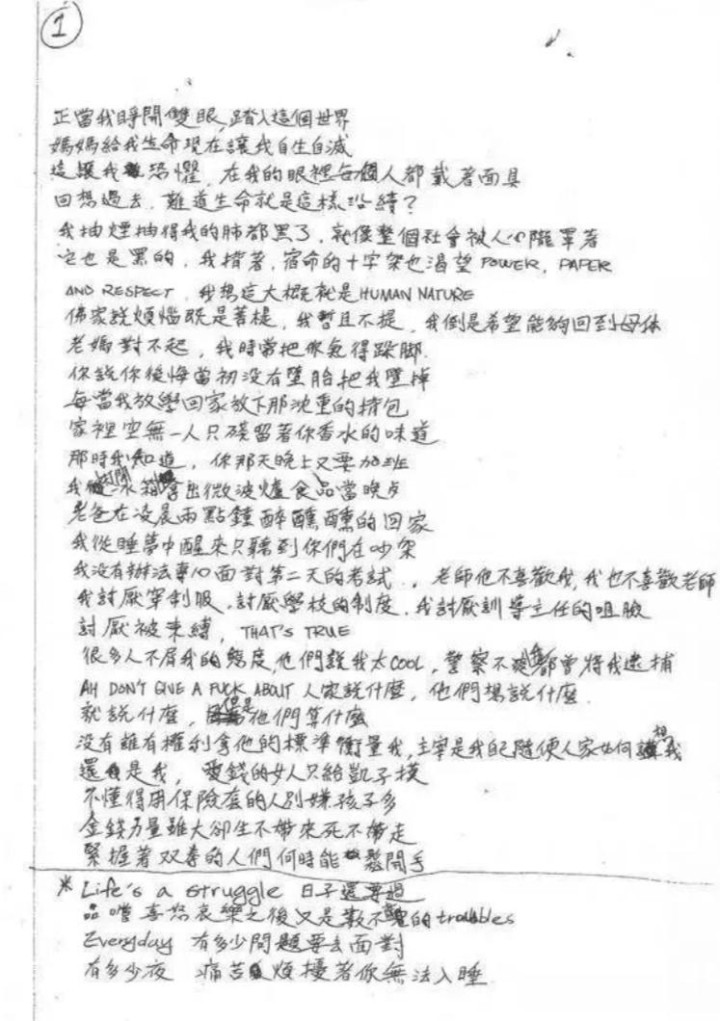 1
正當我睜開雙眼,踏入這個世界
媽媽給我生命現在讓我自生自滅
這讓我恐懼,在我的眼裡每個人都戴著面具
回想過去,難道生命就是這樣沿續?
我抽煙抽得我的肺都黑了,就像整個社會被人心籠罩著
它也是黑的,我揹著,宿命的十字架也渴望POWER, PAPER
AND RESPECT,我想這大概就是HUMAN NATURE
佛家說煩惱既是菩提,我暫且不提,我倒是希望能夠回到母体
老媽對不起,我時常把你氣得跺脚.
你說你後悔當初沒有墮胎把我墮掉
每當我放學回家放下那沈重的揹包
家裡空無一人只殘留著你香水的味道
那時我知道,你那天晚上又要加班
我打開冰箱拿出微波爐食品當晚歺
老爸在凌晨兩點鐘醉醺醺的回家
我從睡夢中醒來只聽到你們在吵架
我沒有辦法專心面對第二天的考試.,老師他不喜歡我,我也不喜歡老師
我討厭穿制服,討厭學校的制度,我討厭訓導主任的咀臉
討厭被束縛,THAT'S TRUE
很多人不屑我的態度,他們說我太COOL,警察不都曾將我逮捕
AH DON'T GIVE A FUCK ABOUT 人家說什麼,他們想說什麼.
就說什麼,但是他們算什麼
沒有誰有權利拿他的標準衡量我,主宰是我自己隨便人家如何想我
還是我,愛錢的女人只給凱子摸
不懂得用保險套的人別嫌孩子多
金錢力量雖大卻生不帶來死不帶走
緊握著双拳的人們何時能鬆開手
* Life's a struggle 日子還要過
品嚐喜怒哀樂之後又是數不盡的troubles
Everyday 有多少問題要去面對
有多少夜 痛苦煩擾著你無法入睡